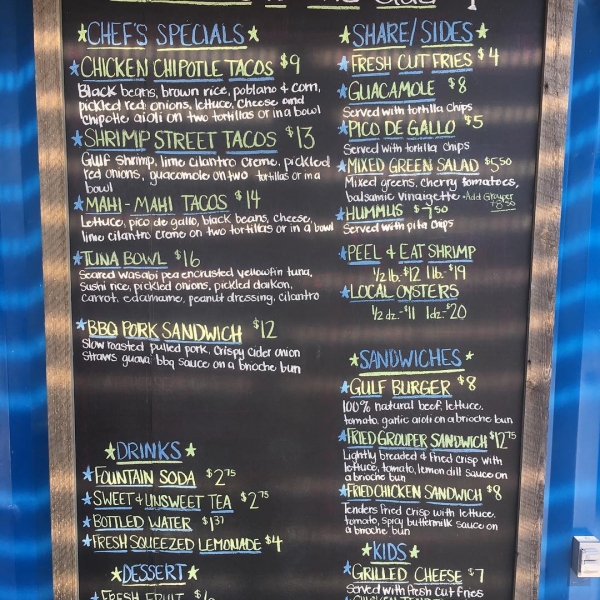 CHEF'S SPECIALS
CHICKEN CHIPOTLE TACOS $9
Black beans, brown rice, poblano & corn,
pickled red onions, lettuce, cheese and
chipotle aioli on two tortillas or in a bowl
SHRIMP STREET TACOS $13
Gulf shrimp, lime cilantro creme, pickled
red onions, guacamole on two tortillas or in a
bowl
MAHI-MAHI TACOS $14
Lettuce, pico de gallo, black beans, cheese,
lime cilantro creme on two tortillas or in a bowl
TUNA BOWL $16
Seared wasabi pea encrusted yellowfin tuna,
sushi rice, pickled onions, pickled daikon,
carrot, edamame, peanut dressing, cilantro
BBQ PORK SANDWICH $12
Slow roasted pulled pork, crispy cider onion
straws guava bbq sauce on a brioche bun
DRINKS
FOUNTAIN SODA $2.75
SWEET & UNSWEET TEA $2.75
BOTTLED WATER $1.37
FRESH SQUEEZED LEMONADE $4
DESSERT
FRESH FRUIT
SHARE/SIDES
FRESH CUT FRIES $4
GUACAMOLE $8
Served with tortilla chips
PICO DE GALLO $5
Served with tortilla chips
MIXED GREEN SALAD $5.50
Mixed greens, cherry tomatoes,
balsamic vinaigette • Add Grouper
HUMMUS $7.50
Served with pita chips
PEEL & EAT SHRIMP
1/2 lb. $12 1 lb. $19
LOCAL OYSTERS
1/2 dz. - $11 1 dz. - $20
SANDWICHES
GULF BURGER $8
100% natural beef, lettuce,
tomato, garlic aioli on a brioche bun
FRIED GROUPER SANDWICH $12.75
Lightly breaded & fried crisp with
lettuce, tomato, lemon dill sauce on
a brioche bun
FRIED CHICKEN SANDWICH $8
Tenders fried crisp with lettuce,
tomato, spicy buttermilk sauce on
a brioche bun
KIDS
GRILLED CHEESE $7
Served with fresh cut fries